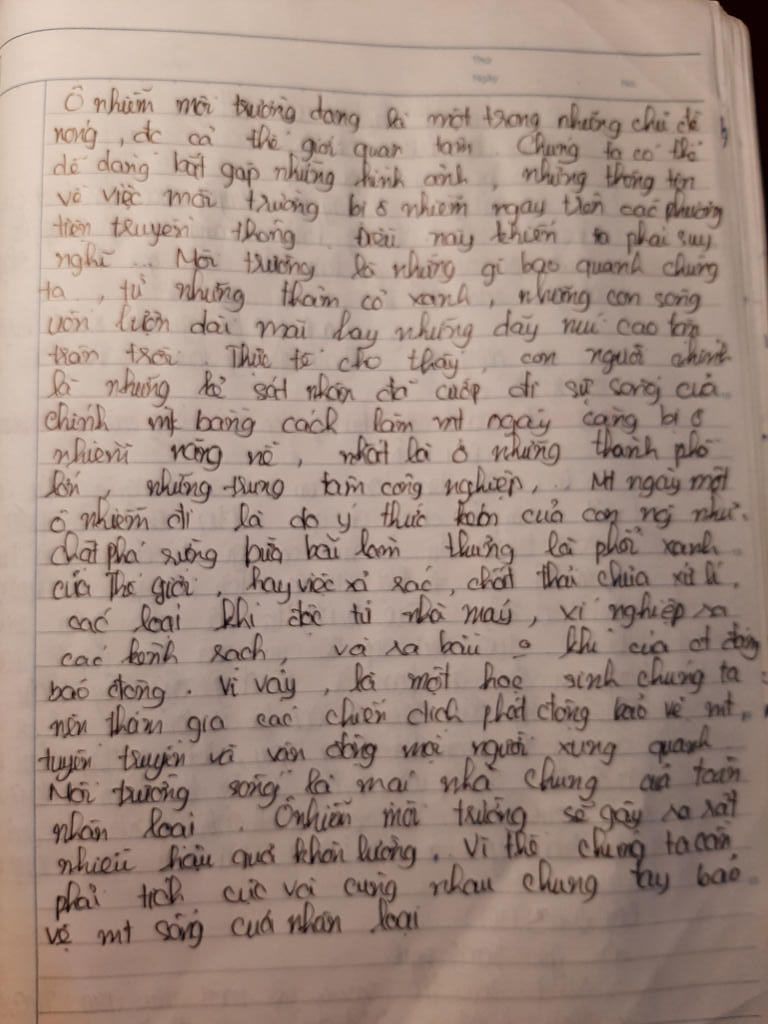 Ô nhiễm môi trường đang là một trong những chủ đề
nóng, đc cả thế giới quan tâm. Chúng ta có thể
dễ dàng bắt gặp những hình ảnh, những thông tin
về việc môi trường bị ô nhiễm ngay trên các phương
tiện truyền thông. Điều này khiến ta phải suy
nghĩ... Môi trường là những gì bao quanh chúng
ta, từ những thảm cỏ xanh, những con sông
uốn lượn dài mãi hay những dãy núi cao
trên trời. Thực tế cho thấy, con người chính
là những kẻ sát nhân đã cướp đi sự sống của
chính mt bằng cách làm mt ngày càng bị ô
nhiễm nặng nề, nhất là ở những thành phố
lớn, những trung tâm công nghiệp,... Mt ngày một
ô nhiễm đi là do ý thức kém của con ng như:
chặt phá rừng bừa bãi làm thương lá phổi xanh
của thế giới, hay việc xả rác, chất thải chưa xử lí,
các loại khí độc từ nhà máy, xí nghiệp ra
các kênh rạch, và ra bầu khí của
báo động. Vì vậy, là một học sinh chúng ta
nên tham gia các chiến dịch phát động bảo vệ mt,
tuyên truyền và vận động mọi người xung quanh
Môi trường sống là mái nhà chung của toàn
nhân loại. Ô nhiễm môi trường sẽ gây ra rất
nhiều hậu quả khôn lường. Vì thế chúng ta cần
phải tích cực và cùng nhau chung tay bảo
vệ mt sống của nhân loại